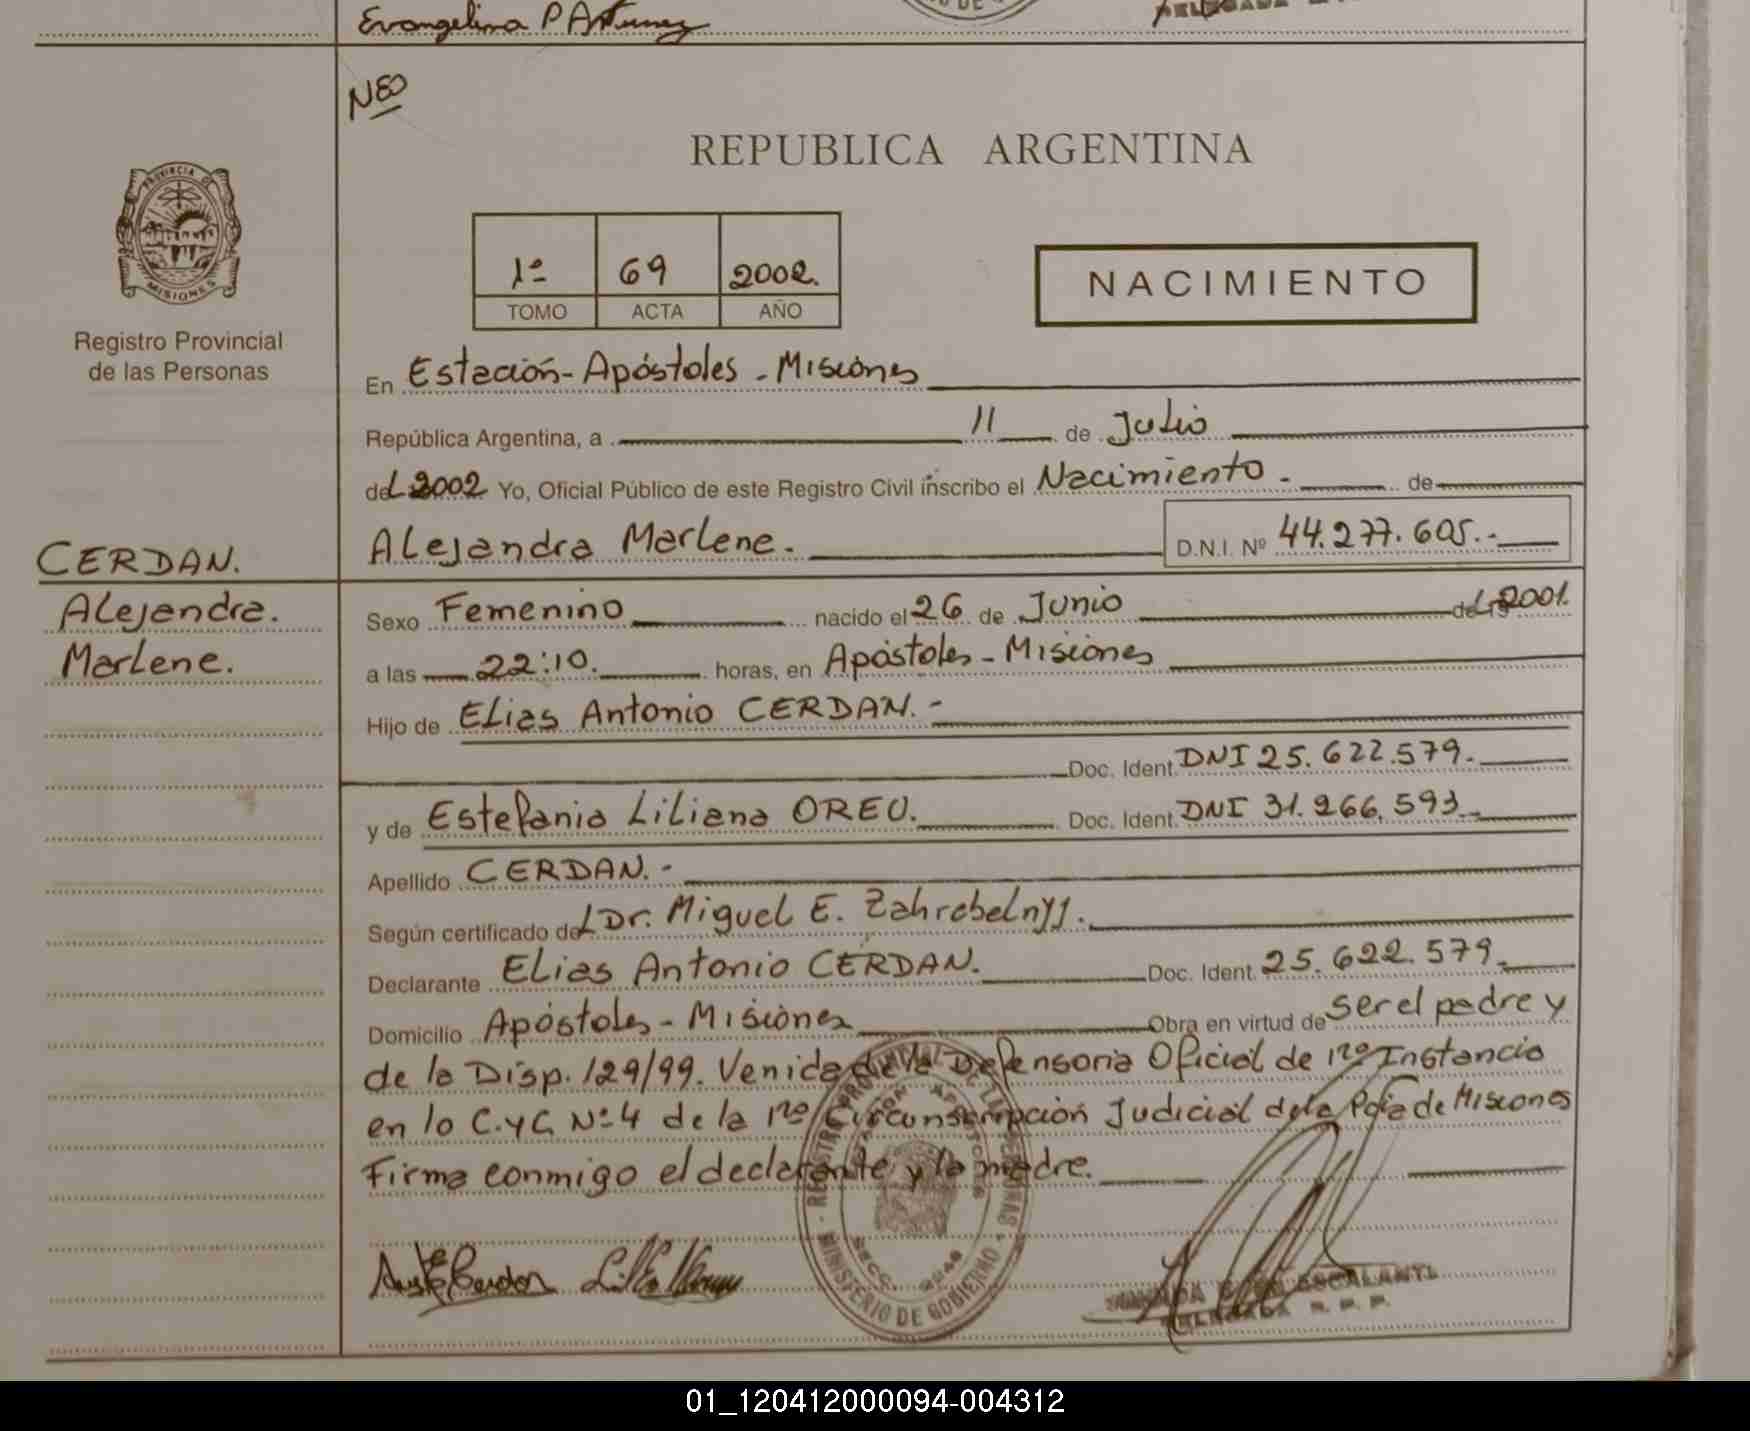 Evangelina P Antunez
NEO
REPUBLICA ARGENTINA
PROVINCIA DE
MISIONES
Registro Provincial
de las Personas
1º 69 2002.
TOMO ACTA AÑO
NACIMIENTO
En Estación-Apóstoles - Misiones
República Argentina, a 11 de Julio
del 2002 Yo, Oficial Público de este Registro Civil inscribo el Nacimiento - de
Alejandra Marlene. D.N.I. Nº 44.277.605.-
CERDAN.
Alejandra.
Marlene.
Sexo Femenino nacido el 26 de Junio del 2001.
a las 22:10. horas, en Apóstoles - Misiones
Hijo de Elias Antonio CERDAN. -
Doc. Ident. DNI 25.622.579.
y de Estefania Liliana OREU. Doc. Ident. DNI 31.266.593.
Apellido CERDAN. -
Según certificado del Dr. Miguel E. Zahrebelnyj.
Declarante Elias Antonio CERDAN. Doc. Ident. 25.622.579.
Domicilio Apóstoles - Misiones Obra en virtud de ser el padre y
de la Disp. 129/99. Venida de la Defensoria Oficial de 1ra Instancia
en lo C.yC. Nº 4 de la 1ra Circunscripción Judicial de la Pcia de Misiones
Firma conmigo el declarante y la madre.
MINISTERIO DE GOBIERNO
ESCALANTE
DELEGADA R. P. P.
01_120412000094-004312